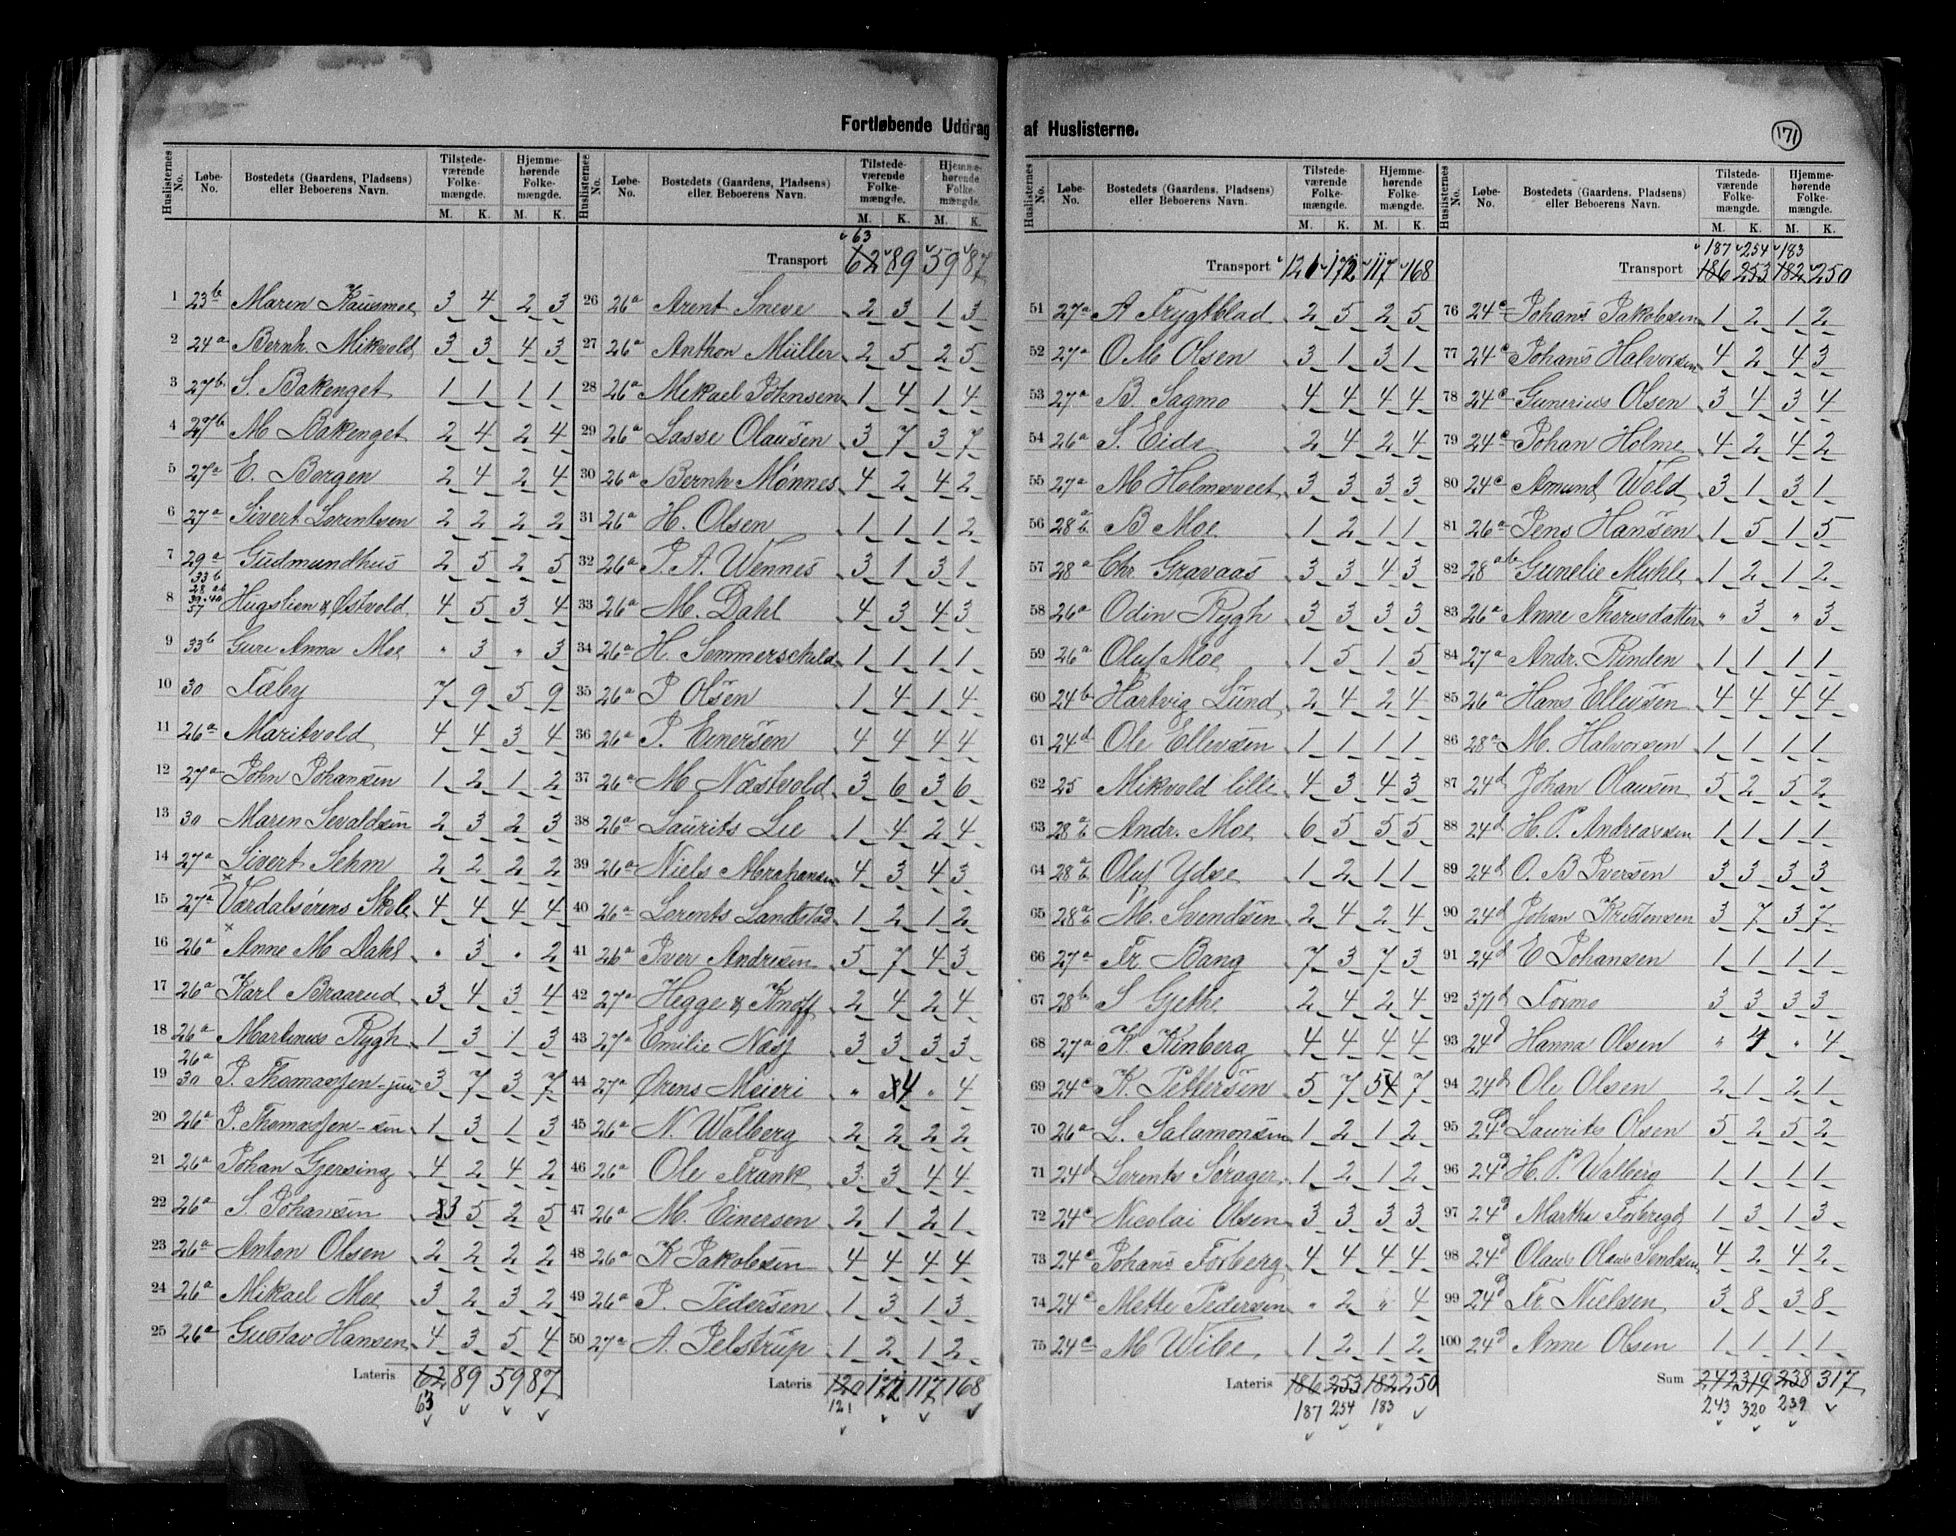 Fortløbende Uddrag af Huslisterne.
171
Huslisternes No. Løbe-No. Bostedets (Gaardens, Pladsens) eller Beboerens Navn. Tilstedeværende Folkemængde. M. K. Hjemmehørende Folkemængde. M. K.
1 23b Maren Kausmoe 3 4 2 3
2 24a Bernh. Mikvold 3 3 4 3
3 27b S. Bakenget 1 1 1 1
4 27b M Bakenget 2 4 2 4
5 27a E. Bergen 2 4 2 4
6 27a Sivert Lorentsen 2 2 2 2
7 29a Gudmundhus 2 5 2 5
8 33b 28ab 39.40 57 Hugslien & Østvold 4 5 3 4
9 33b Guru Anna Moe " 3 " 3
10 30 Fæby 7 9 5 9
11 26a Maritvold 4 4 3 4
12 27a John Johansen 1 2 1 2
13 30 Maren Sevaldsen 2 3 2 3
14 27a Sivert Sehm 2 2 2 2
15 27a Værdalsørens Skole 4 4 4 4
16 26a Anne M Dahl " 3 " 2
17 26a Karl Braarud 3 4 3 4
18 26a Martinus Rygh 1 3 1 3
19 26a 30 P. Thomassen-jun 3 7 3 7
20 26a P. Thomassen-sen 1 3 1 3
21 26a Johan Gjersing 4 2 4 2
22 26a S Johansen 3 5 2 5
23 26a Anton Olsen 2 2 2 2
24 26a Mikael Moe 3 2 3 2
25 26a Gustav Hansen 4 3 5 4
Lateris 62 89 59 87
63
Huslisternes No. Løbe-No. Bostedets (Gaardens, Pladsens) eller Beboerens Navn. Tilstedeværende Folkemængde. M. K. Hjemmehørende Folkemængde. M. K.
63
Transport 62 89 59 87
26 26a Arent Sneve 2 3 1 3
27 26a Anthon Müller 2 5 2 5
28 26a Mekael Johnsen 1 4 1 4
29 26a Lasse Olausen 3 7 3 7
30 26a Bernh Mønnes 4 2 4 2
31 26a H. Olsen 1 1 1 2
32 26a P. A. Wennes 3 1 3 1
33 26a M. Dahl 4 3 4 3
34 26a H. Sommerschild 1 1 1 1
35 26a P Olsen 1 4 1 4
36 26a P. Einersen 4 4 4 4
37 26a M Næstvold 3 6 3 6
38 26a Laurits Lie 1 4 2 4
39 26a Niels Abrahamsen 4 3 4 3
40 26a Lorents Landstad 1 2 1 2
41 26a Iver Andresen 5 7 4 3
42 27a Hegge & Knoff 2 4 2 4
43 27a Emilie Næss 3 3 3 3
44 27a Ørens Meieri " 4 " 4
45 26a N. Walberg 2 2 2 2
46 26a Ole Frank 3 3 4 4
47 26a M. Einersen 2 1 2 1
48 26a K Jakobsen 4 4 4 4
49 26a P. Pedersen 1 3 1 3
50 27a A. Jelstrup 1 2 1 2
Lateris 120 172 117 168
121
Huslisternes No. Løbe-No. Bostedets (Gaardens, Pladsens) eller Beboerens Navn. Tilstedeværende Folkemængde. M. K. Hjemmehørende Folkemængde. M. K.
Transport 121 172 117 168
51 27a A Frygtblad 2 5 2 5
52 27a O M Olsen 3 1 3 1
53 27a B. Sagmo 4 4 4 4
54 26a S. Eide 2 4 2 4
55 27a M Holmsveet 3 3 3 3
56 28ab B Moe 1 2 1 1
57 28a Chr Gravaas 3 3 4 3
58 26a Odin Rygh 3 3 3 3
59 26a Oluf Moe 1 5 1 5
60 24b Hartvig Lund 2 4 2 4
61 24d Ole Ellevsen 1 1 1 1
62 25 Mikvold lille 4 3 4 3
63 28ab Andr. Moe 6 5 5 5
64 28ab Oluf Ydse 1 2 1 1
65 28ab M. Svendsen 2 4 2 4
66 27a Fr. Bang 7 3 7 3
67 28b S Grethe 2 4 2 4
68 27a K. Kinberg 4 4 4 4
69 24c K. Pettersen 5 7 5 7
70 26a L. Salamonsen 1 2 1 2
71 24d Lorents Sørager 1 2 1 2
72 24c Nicolai Olsen 3 3 3 3
73 24c Johans Forberg 4 4 4 4
74 24c Mette Pedersen " 2 " 4
75 24c M Wibe 1 2 1 2
Lateris 186 253 182 250
187 254 183
Huslisternes No. Løbe-No. Bostedets (Gaardens, Pladsens) eller Beboerens Navn. Tilstedeværende Folkemængde. M. K. Hjemmehørende Folkemængde. M. K.
187 254 183
Transport 186 253 182 250
76 24c Johans Jakobsen 1 2 1 2
77 24c Johans Halvorsen 4 2 4 3
78 24c Gunerius Olsen 3 4 3 4
79 24c Johan Holme 4 2 4 2
80 24c Amund Wold 3 1 3 1
81 26a Jens Hansen 1 5 1 5
82 28ab Gunelie Muhle 1 2 1 2
83 26a Anne Thoresdatter " 3 " 3
84 27a Andr. Rinden 1 1 1 1
85 26a Hans Ellevsen 4 4 4 4
86 28a M. Halvorsen 1 1 1 1
87 24d Johan Olausen 5 2 5 2
88 24d H. P. Andreassen 1 1 1 1
89 24d O. B Iversen 3 3 3 3
90 24d Johan Kristensen 3 7 3 7
91 24d E Johansen 1 1 1 1
92 37d Formo 3 3 3 3
93 24d Hanna Olsen " 4 " 4
94 24d Ole Olsen 2 1 2 1
95 24d Laurits Olsen 5 2 5 2
96 24d H. P. Walberg 1 1 1 1
97 24d Martha Forbregd 1 3 1 3
98 24d Olaus Olaus Sendsen 4 2 4 2
99 24d Fr Nielsen 3 8 3 8
100 24d Anne Olsen 1 1 1 1
Sum 242 319 238 317
243 320 239